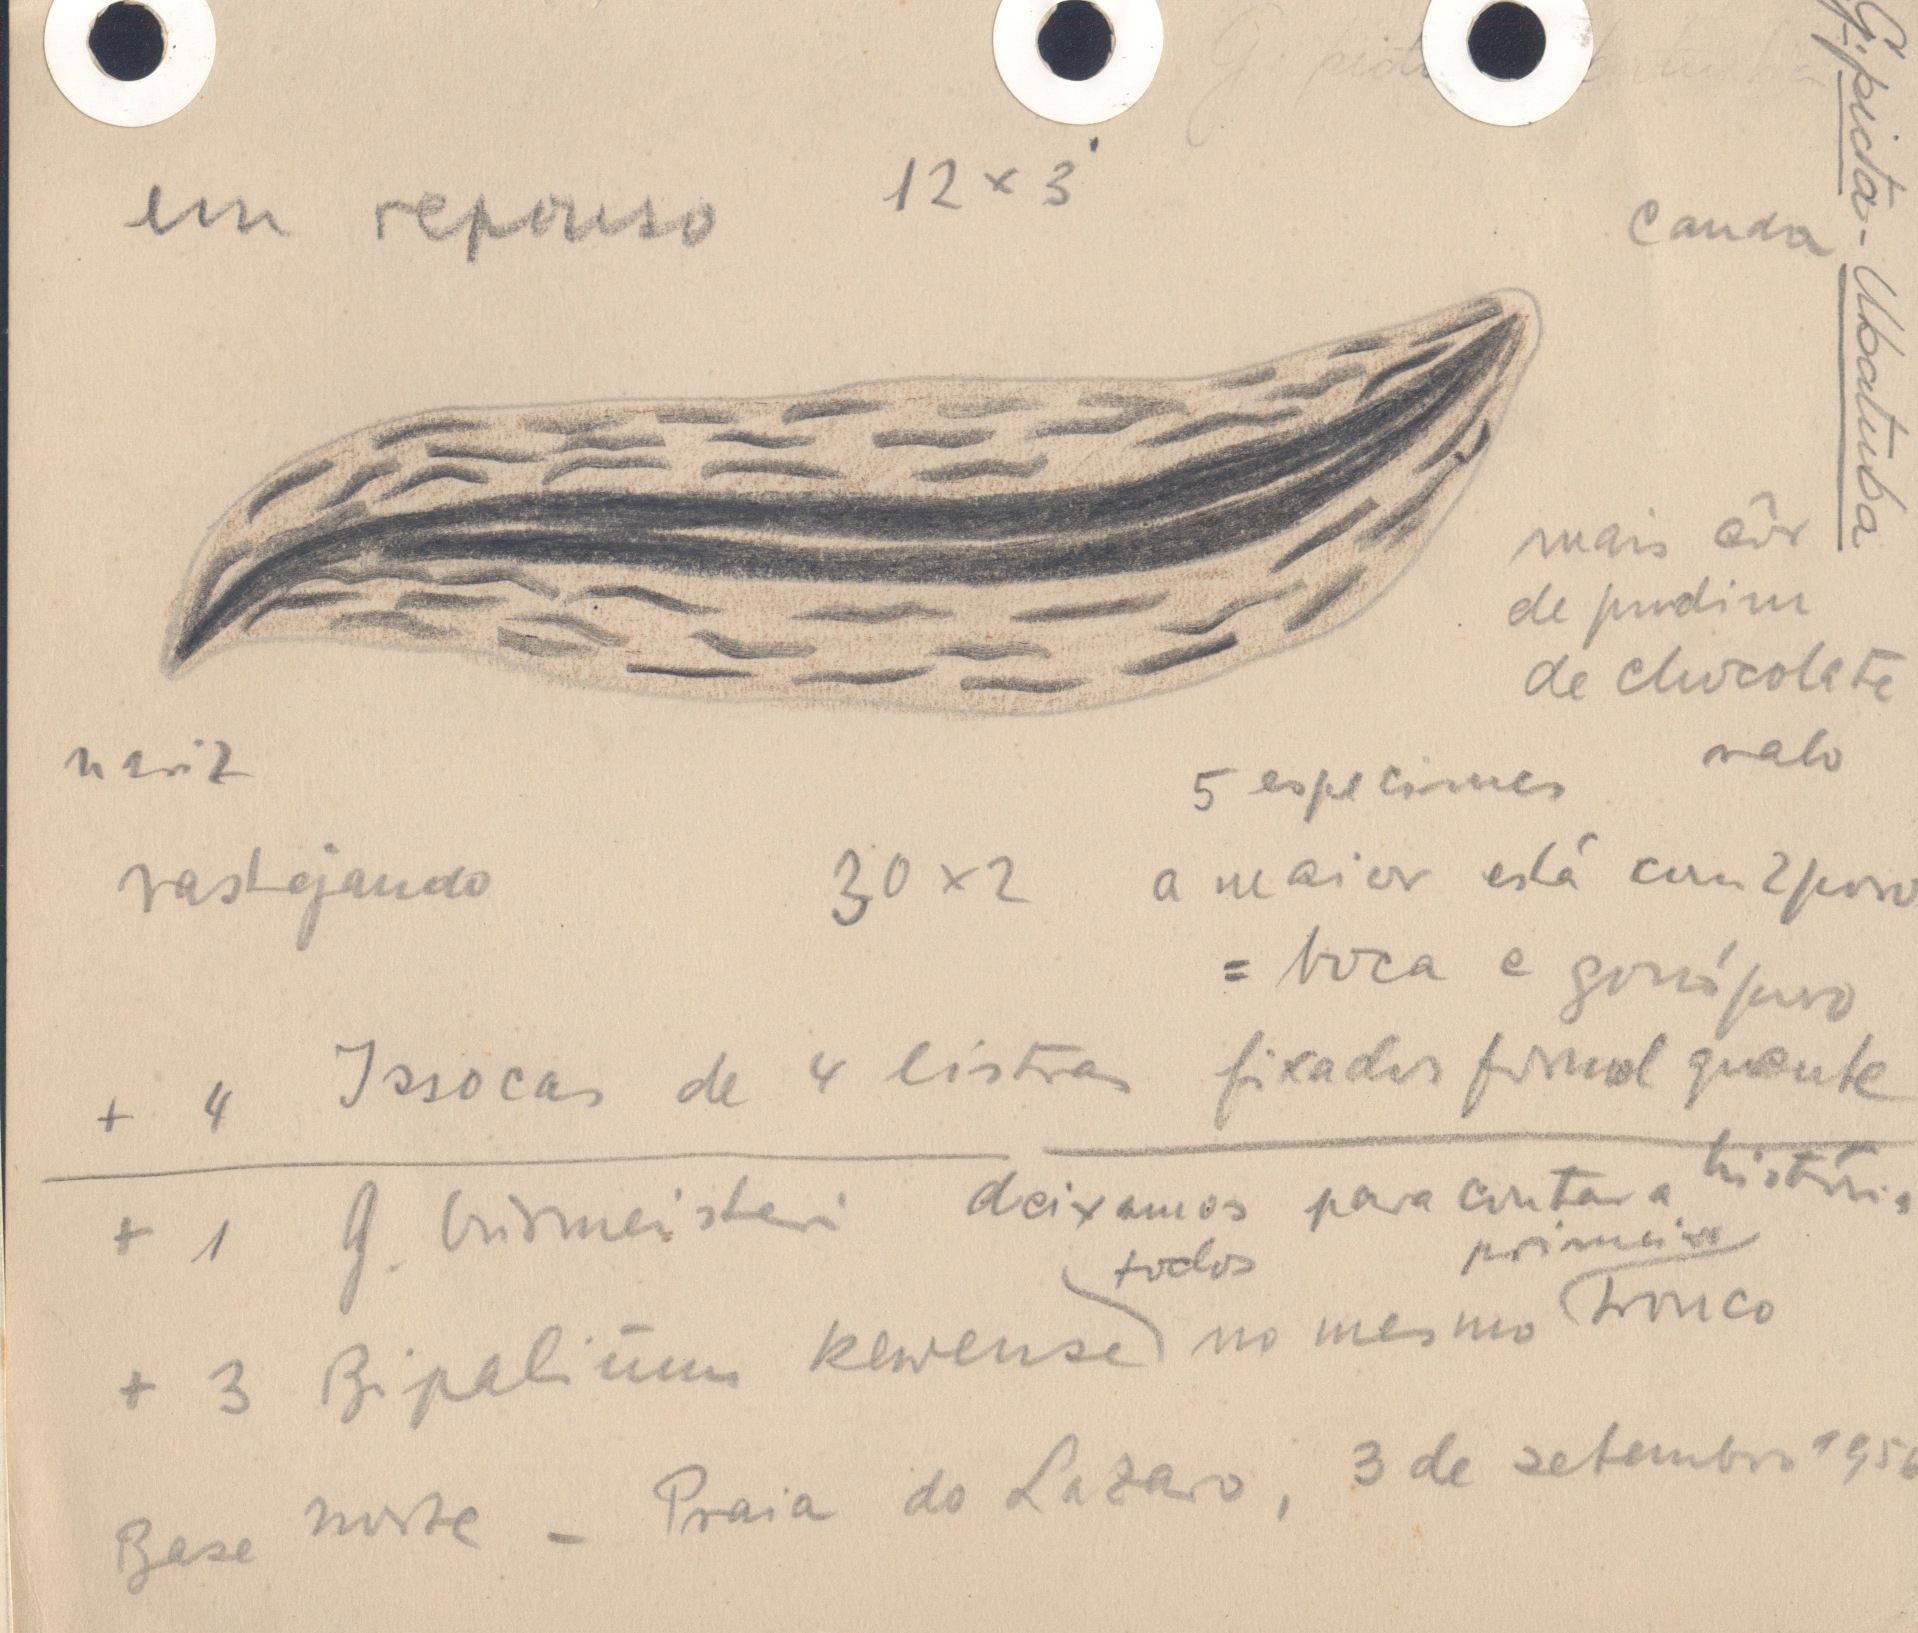 G. picta - Ubatuba
em repouso 12 × 3
cauda
mais côr
de pudim
de chocolate
ralo
nariz
5 especimes
rastejando 30 × 2 a maior está com 2 poro
= boca e gonóporo
+ 4 Issocas de 4 listras fixados formol quente
+ 1 G. burmeisteri deixamos para contar a história
todos primeiro
+ 3 Bipalium kewense no mesmo tronco
Base norte - Praia do Lazaro, 3 de setembro 1956